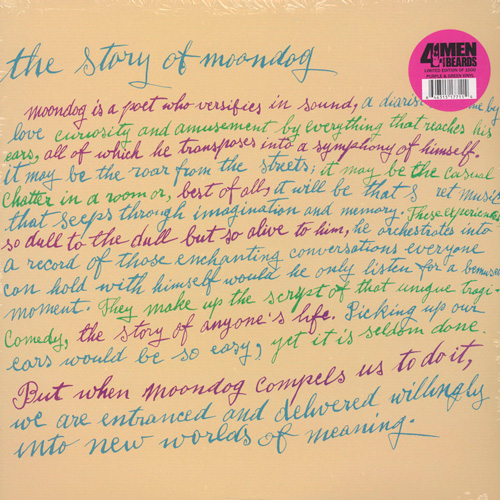 the story of moondog
4 MEN
WITH BEARDS
LIMITED EDITION OF
PURPLE & GREEN VINYL
moondog is a poet who versifies in sound, a diarist by
love curiosity and amusement by everything that reaches his
ears, all of which he transposes into a symphony of himself.
it may be the roar from the streets; it may be the casual
chatter in a room or, best of all, it will be that s ret music
that seeps through imagination and memory. These experiences
so dull to the dull but so alive to him, he orchestrates into
a record of those enchanting conversations everyone
can hold with himself would he only listen for a bemused
moment. They make up the script of that unique tragi-
comedy, the story of anyone's life. Picking up our
ears would be so easy, yet it is seldom done.
But when moondog compels us to do it,
we are entranced and delivered willingly
into new worlds of meaning.